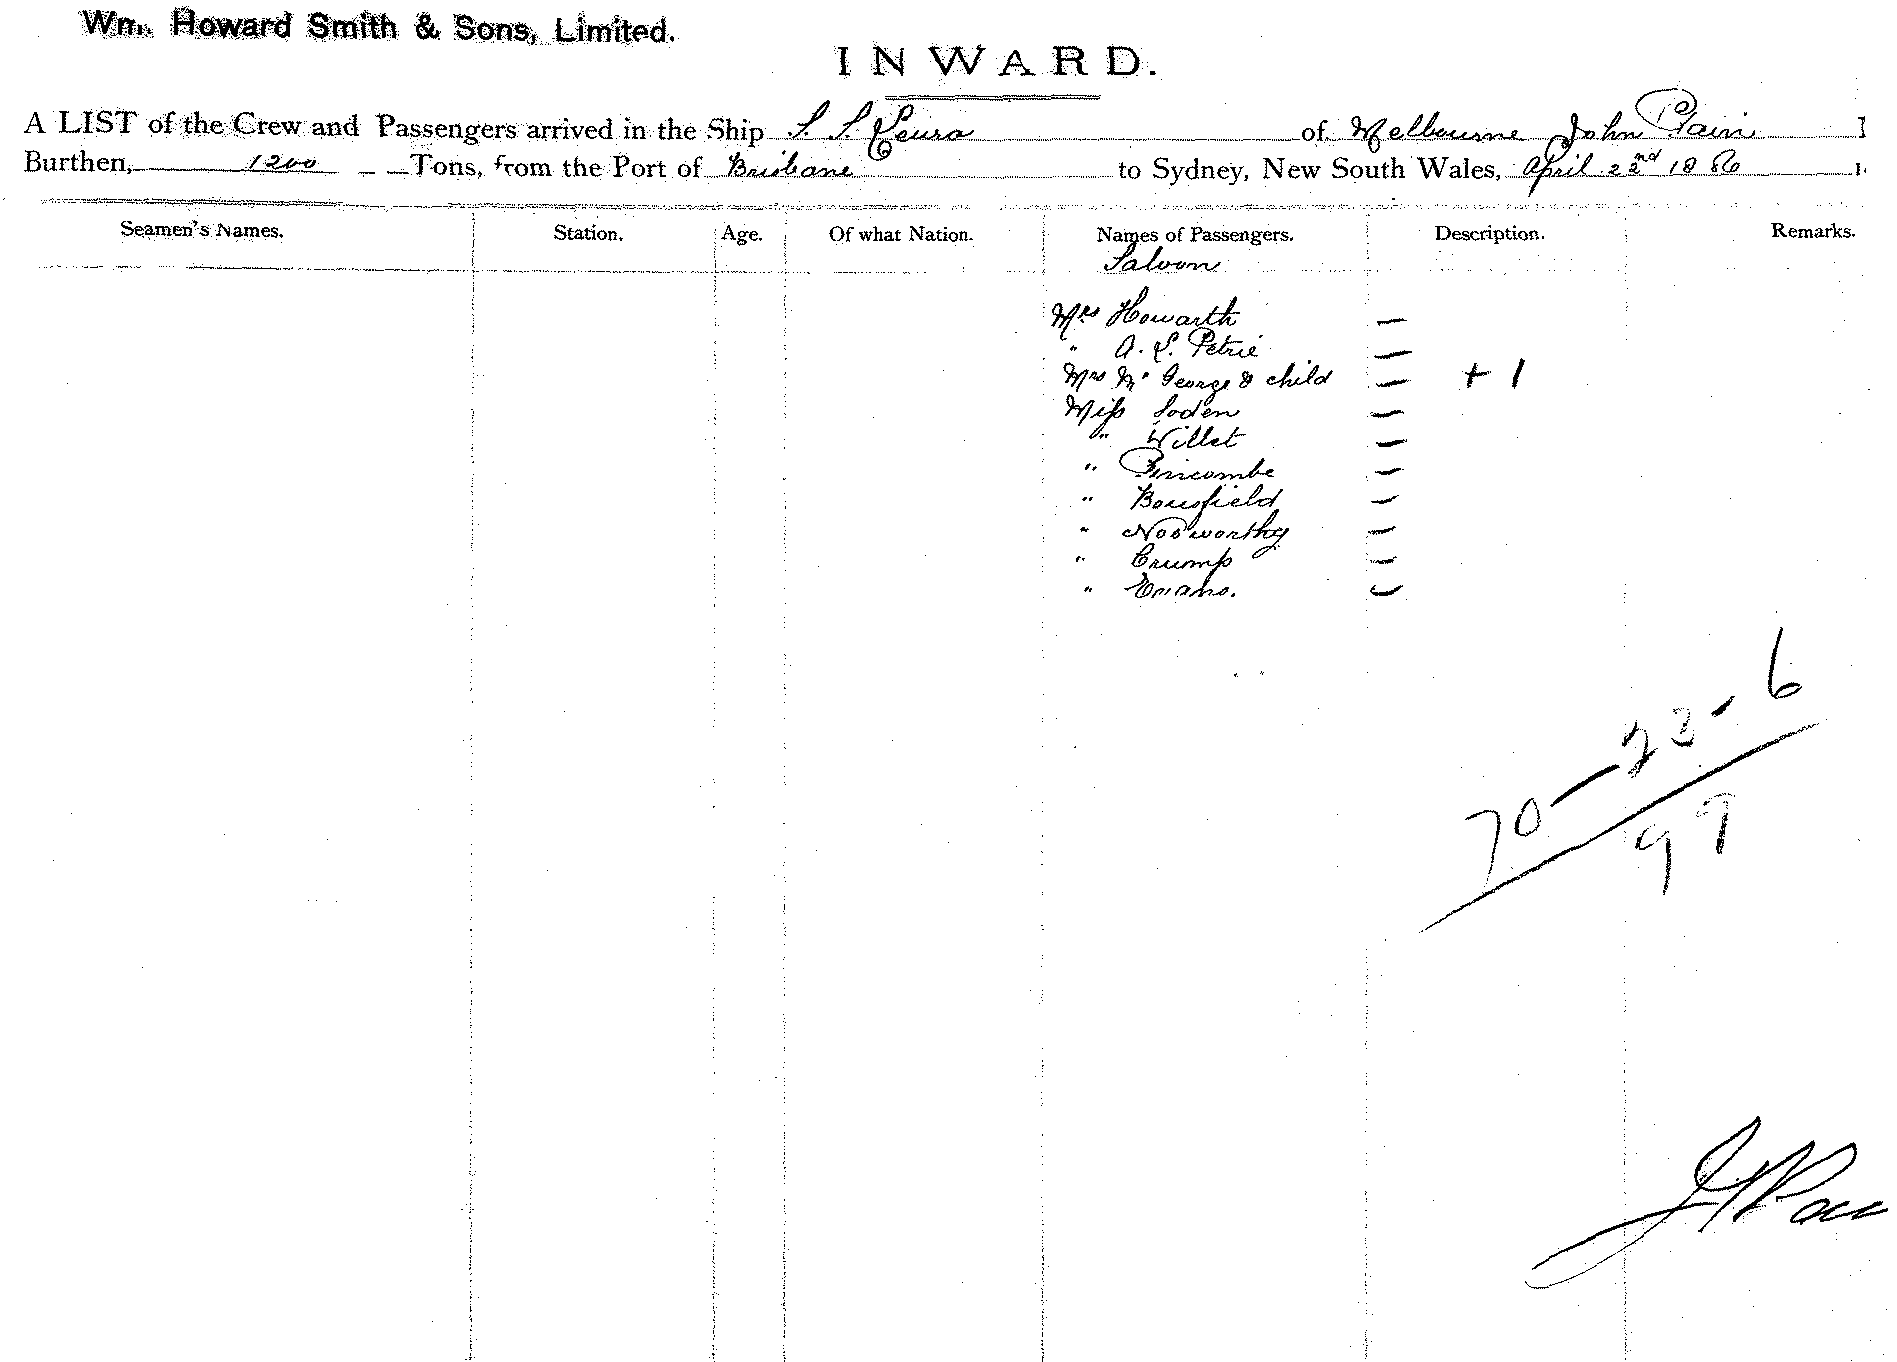 Wm. Howard Smith & Sons, Limited.
INWARD.
A LIST of the Crew and Passengers arrived in the Ship S. S. Leura of Melbourne John Pain
Burthen, 1200 Tons, from the Port of Brisbane to Sydney, New South Wales, April 22nd 1886
Seamen's Names. Station. Age. Of what Nation. Names of Passengers. Description. Remarks.
Saloon
Mrs Howarth —
" A. L. Petrie —
Mrs Mc George & child — + 1
Miss Soden —
" Willet —
" Pincombe —
" Bousfield —
" Nosworthy —
" Crump —
" Evans. —
70 — 23 - 6
99